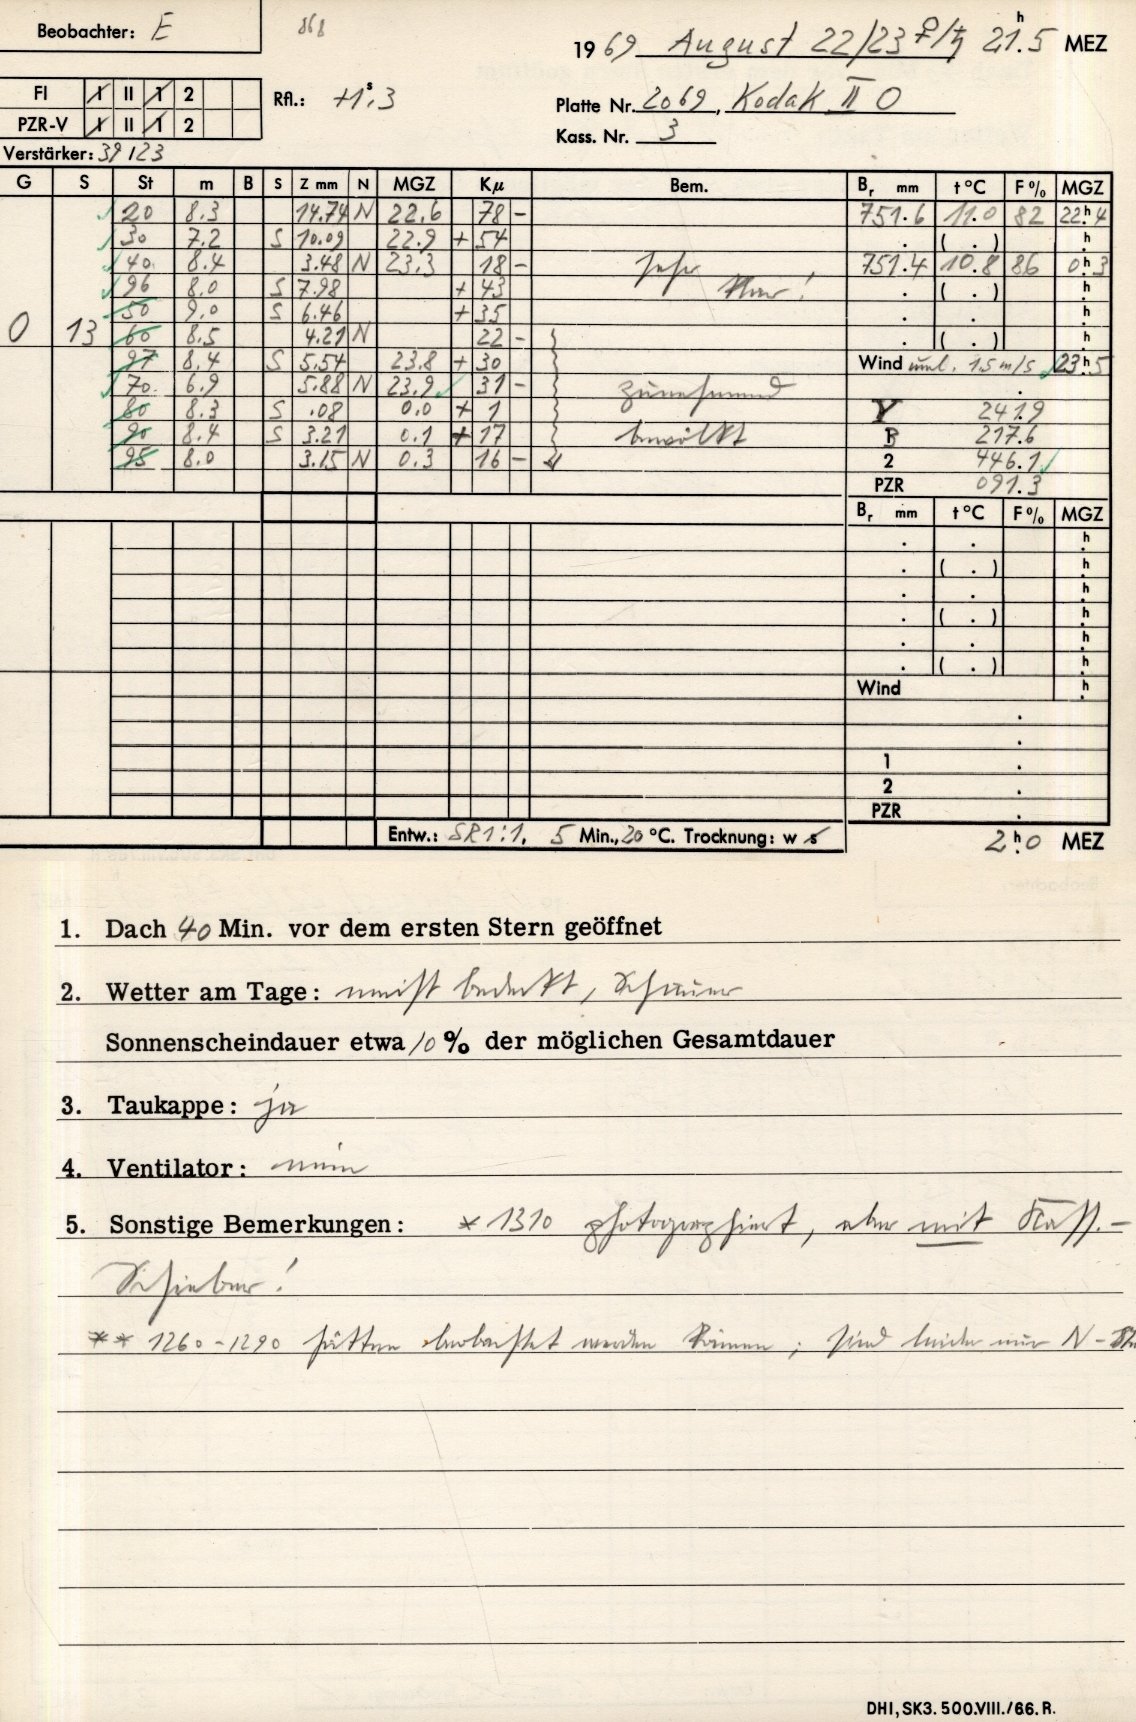 Beobachter: E
868
1969 August 22/23 ♀/♄ 21.ʰ5 MEZ
FI I II 1 2
PZR-V I II 1 2
Rfl.: +1.ˢ3
Platte Nr. 2069, Kodak II O
Kass. Nr. 3
Verstärker: 39 123
G S St m B S Z mm N MGZ Kμ Bem. Bᵣ mm t°C F% MGZ
20 8.3 14.74 N 22.6 78 – 751.6 11.0 82 22.ʰ4
30 7.2 S 10.09 22.9 + 54 . ( . ) .ʰ
40 8.4 3.48 N 23.3 18 – sehr 751.4 10.8 86 0.ʰ3
96 8.0 S 7.98 + 43 klar! . ( . ) .ʰ
50 9.0 S 6.46 + 35 . . .ʰ
0 13 60 8.5 4.21 N 22 – . ( . ) .ʰ
97 8.4 S 5.54 23.8 + 30 Wind uml. 1.5 m/s 23.ʰ5
70 6.9 5.88 N 23.9 31 – zunehmend .
80 8.3 S .08 0.0 + 1 Y 241.9
90 8.4 S 3.21 0.1 + 17 bewölkt B 217.6
95 8.0 3.15 N 0.3 16 – 2 446.1
PZR 091.3
Bᵣ mm t°C F% MGZ
. . .ʰ
. ( . ) .ʰ
. . .ʰ
. ( . ) .ʰ
. . .ʰ
. ( . ) .ʰ
Wind .ʰ
.
.
1 .
2 .
PZR .
Entw.: SR1:1, 5 Min., 20 °C. Trocknung: w s
2.ʰ0 MEZ
1. Dach 40 Min. vor dem ersten Stern geöffnet
2. Wetter am Tage: meist bedeckt, Schauer
Sonnenscheindauer etwa 10 % der möglichen Gesamtdauer
3. Taukappe: ja
4. Ventilator: nein
5. Sonstige Bemerkungen: * 1310 photographiert, aber mit Kass.-
Schieber!
** 1260-1290 hätten beobachtet werden können; sind leider nur N-
DHI, SK3. 500.VIII./66. R.